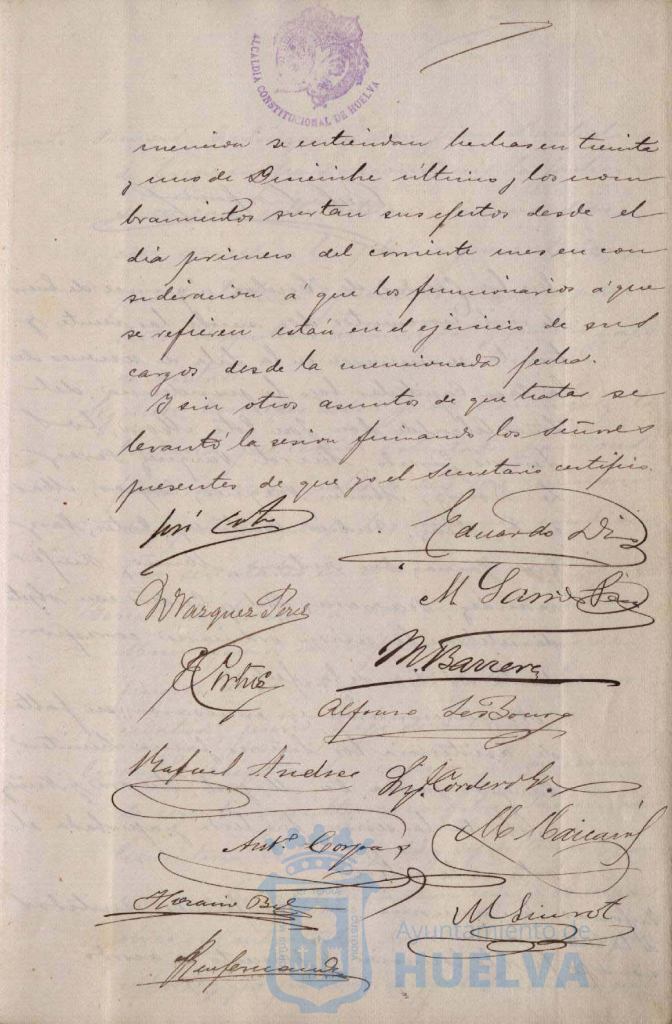 ALCALDIA CONSTITUCIONAL DE HUELVA
mencion se entiendan hechas en treinta
y uno de Diciembre último y los nom
bramientos surtan sus efectos desde el
día primero del corriente mes en con
sideracion á que los funcionarios á que
se refieren están en el ejercicio de sus
cargos desde la mencionada fecha.
Y sin otros asuntos de que tratar se
levantó la sesion firmando los Señores
presentes de que yo el Secretario certifico.
José
Eduardo Diaz
Vazquez Perez
M Garrido
M. Barrera
Alfonso Le Bourg
Rafael Andres
Cordero
Antº Corpas
Horacio Bel
M Siurot
Ayuntamiento de
HUELVA